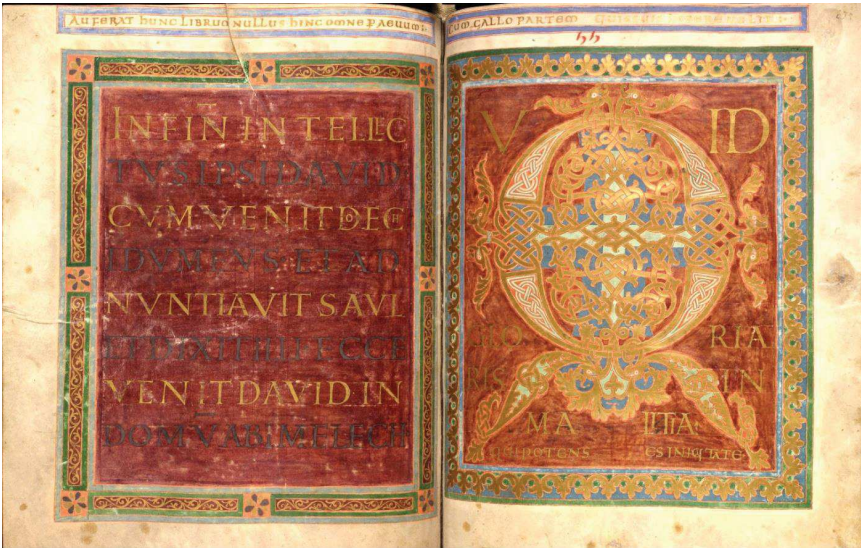 AUFERAT hUNC LIBRUM NULLUS hINC OMNE P AEUUM:
IN FIN̄ INTELLEC
TVS IPSI DAVID
CVM VENIT DOECH
IDVMEVS ET AD
NVNTIAVIT SAVL
ET DIXIT ILLI ECCE
VENIT DAVID IN
DOMV̄ ABIMELECH
CUM GALLO PARTEM
QVID
RIA
IN
MALITIA
POTENS ES INIQITATE